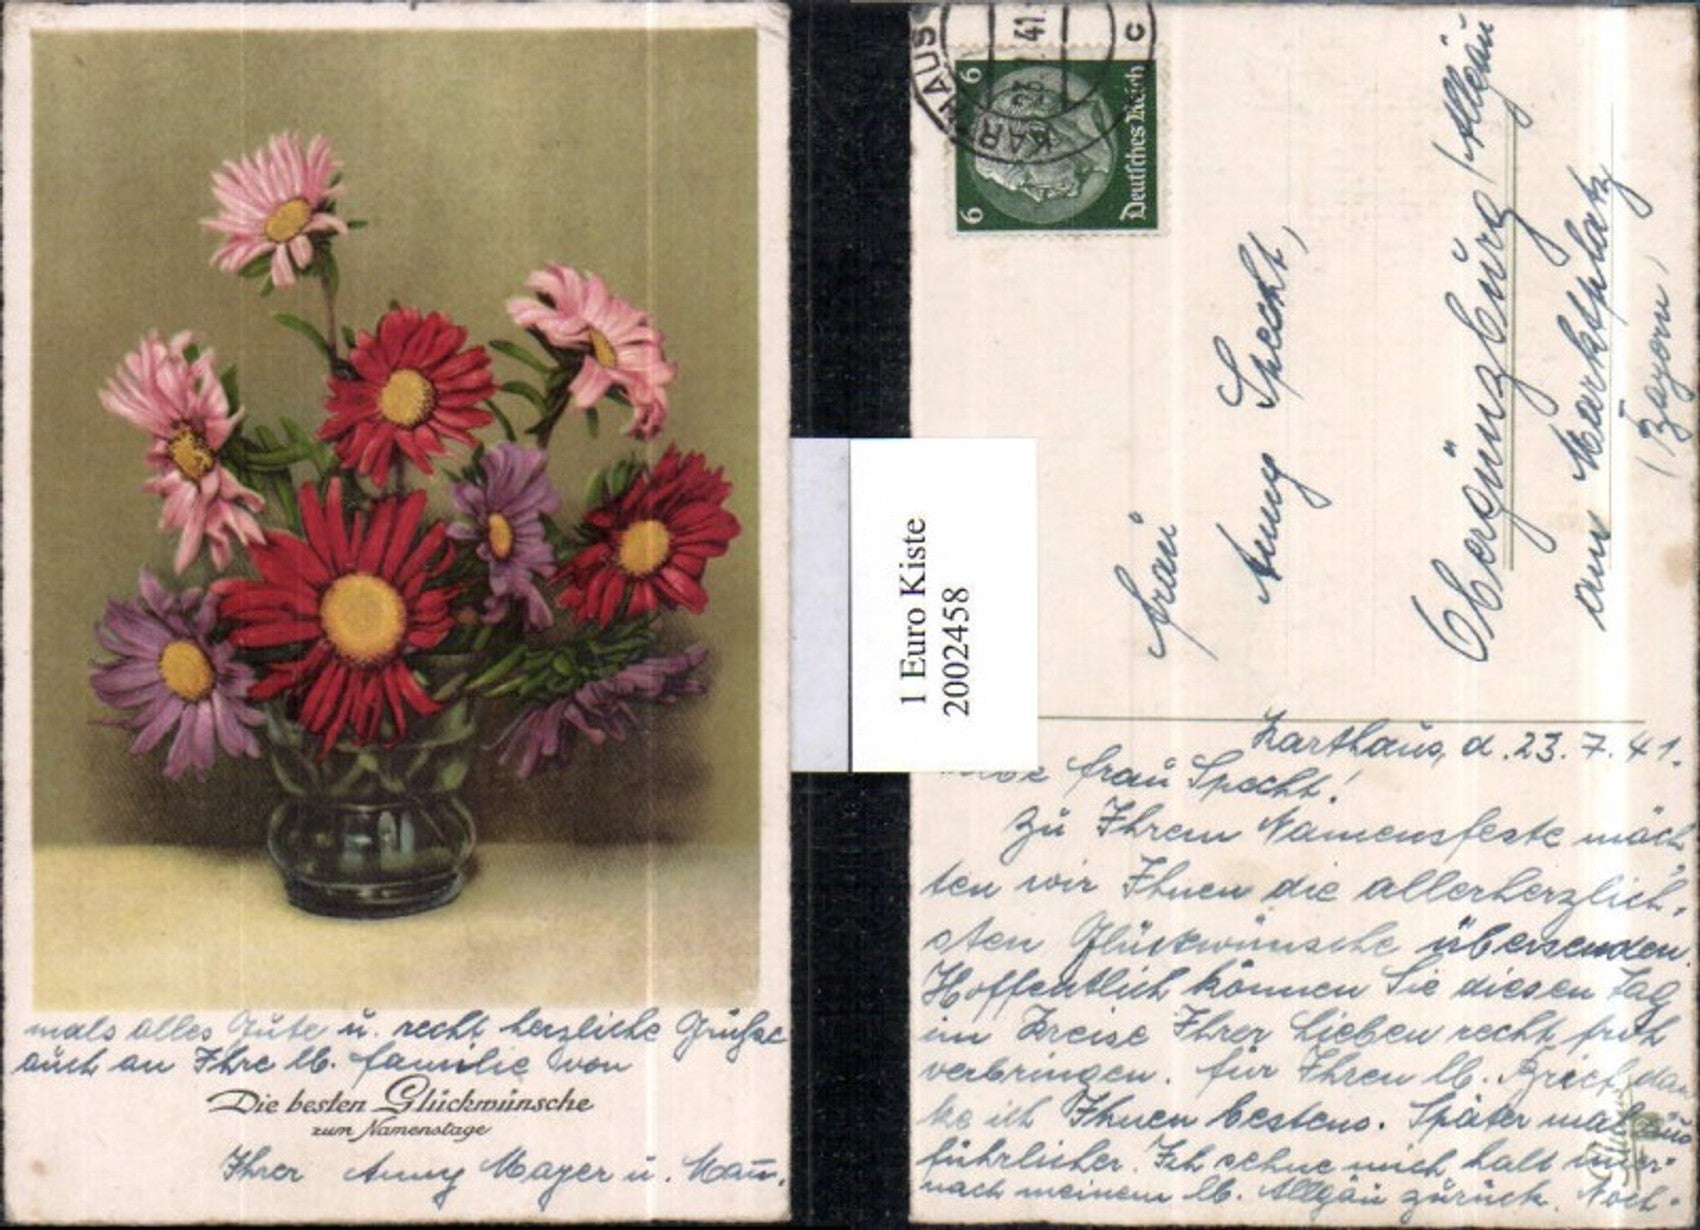 mals alles Gute u. recht herzliche Grüße
auch an Ihre lb. Familie von
Die besten Glückwünsche
zum Namenstage
Ihrer Anny Mayer u. Mann.
1 Euro Kiste
2002458
KARTHAUS
23.7.41
c
6 6
Deutsches Reich
Frau
Anny Specht,
Obergünzburg/Allgäu
am Marktplatz
(Bayern)
Karthaus, d. 23.7.41.
Frau Specht!
Zu Ihrem Namensfeste möch
ten wir Ihnen die allerherzlich-
sten Glückwünsche übersenden.
Hoffentlich können Sie diesen Tag
im Kreise Ihrer Lieben recht froh
verbringen. Für Ihren lb. Brief dan
ke ich Ihnen bestens. Später mal aus
führlicher. Ich sehne mich halt immer
nach meinem lb. Allgäu zurück. Noch-